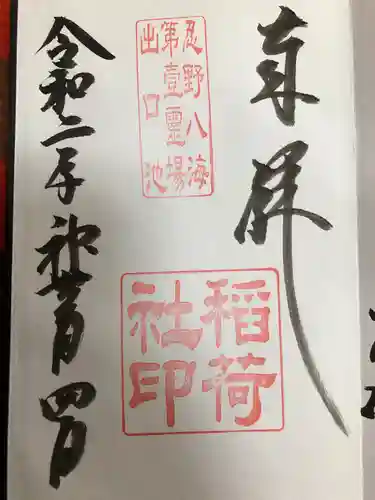 奉拝
忍野八海
第壹靈場
出口池
稲荷
社印
令和二年
神無月四日